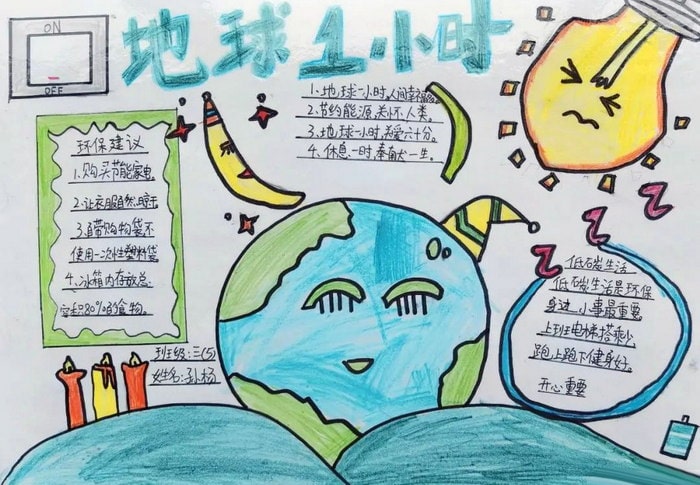 ON
OFF
地球1小时
1.地球一小时,人间幸福
2.节约能源,关怀人类。
3.地球一小时,关爱六十分。
4.休息一时,奉献一生。
环保建议
1.购买节能家电
2.让衣服自然晾干
3.自带购物袋不
使用一次性塑料袋
4.冰箱内存放总
80%的食物。
班级:三(5)
姓名:孙杨
低碳生活
低碳生活是环保
身边小事最重要
上班电梯搭乘少
跑上跑下健身好。
开心重要